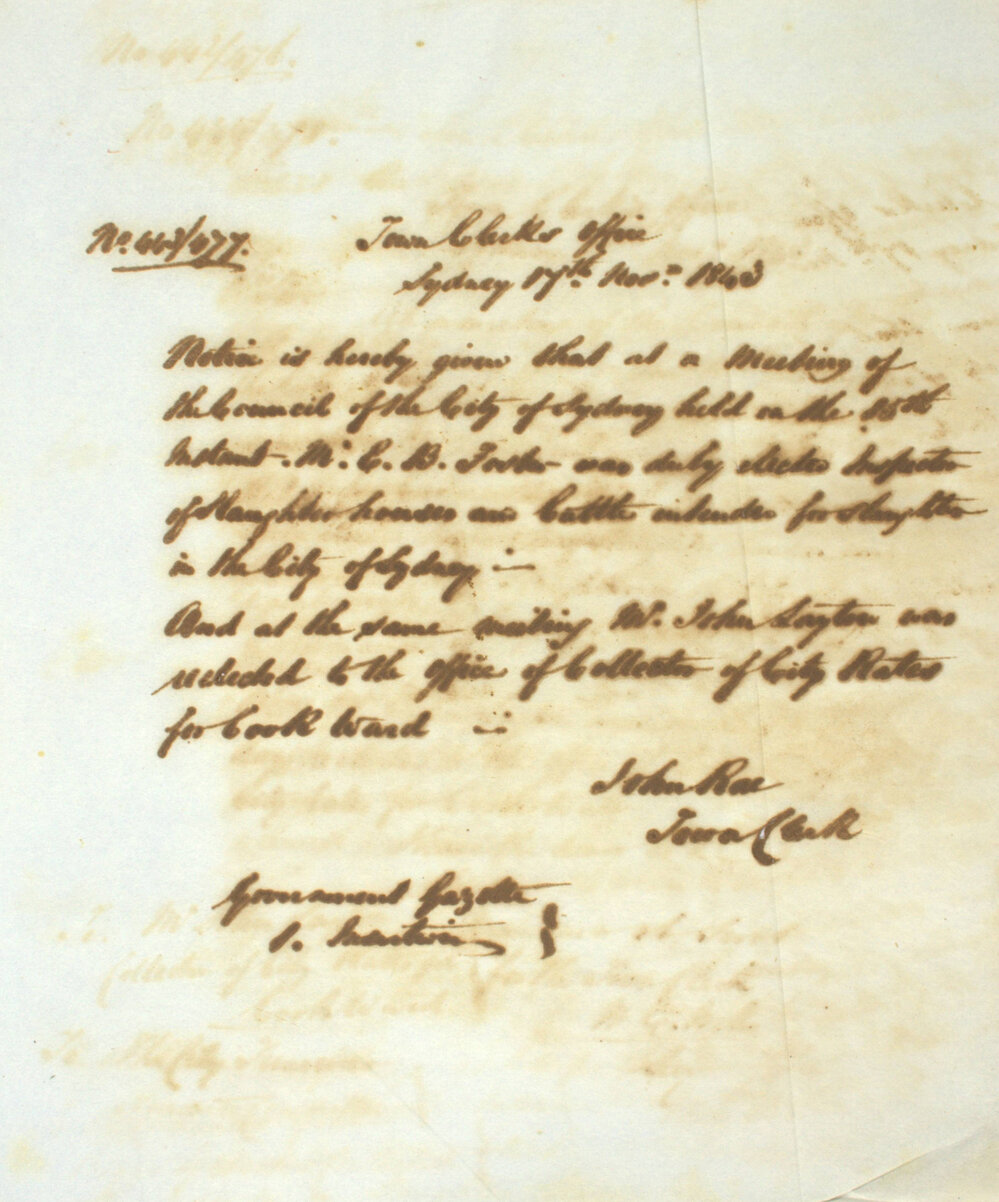 No. 443/477.
Town Clerk's Office
Sydney 17th Novr. 1843
Notice is hereby given that at a Meeting of
the Council of the City of Sydney held on the 15th
Instant Mr. C. B. Foster was duly elected Inspector
of Slaughter houses and Cattle intended for Slaughter
in the City of Sydney
And at the same meeting Mr. John Layton was
reelected to the Office of Collector of City Rates
for Cook Ward
John Rae
Town Clerk
Government Gazette
1. Insertion